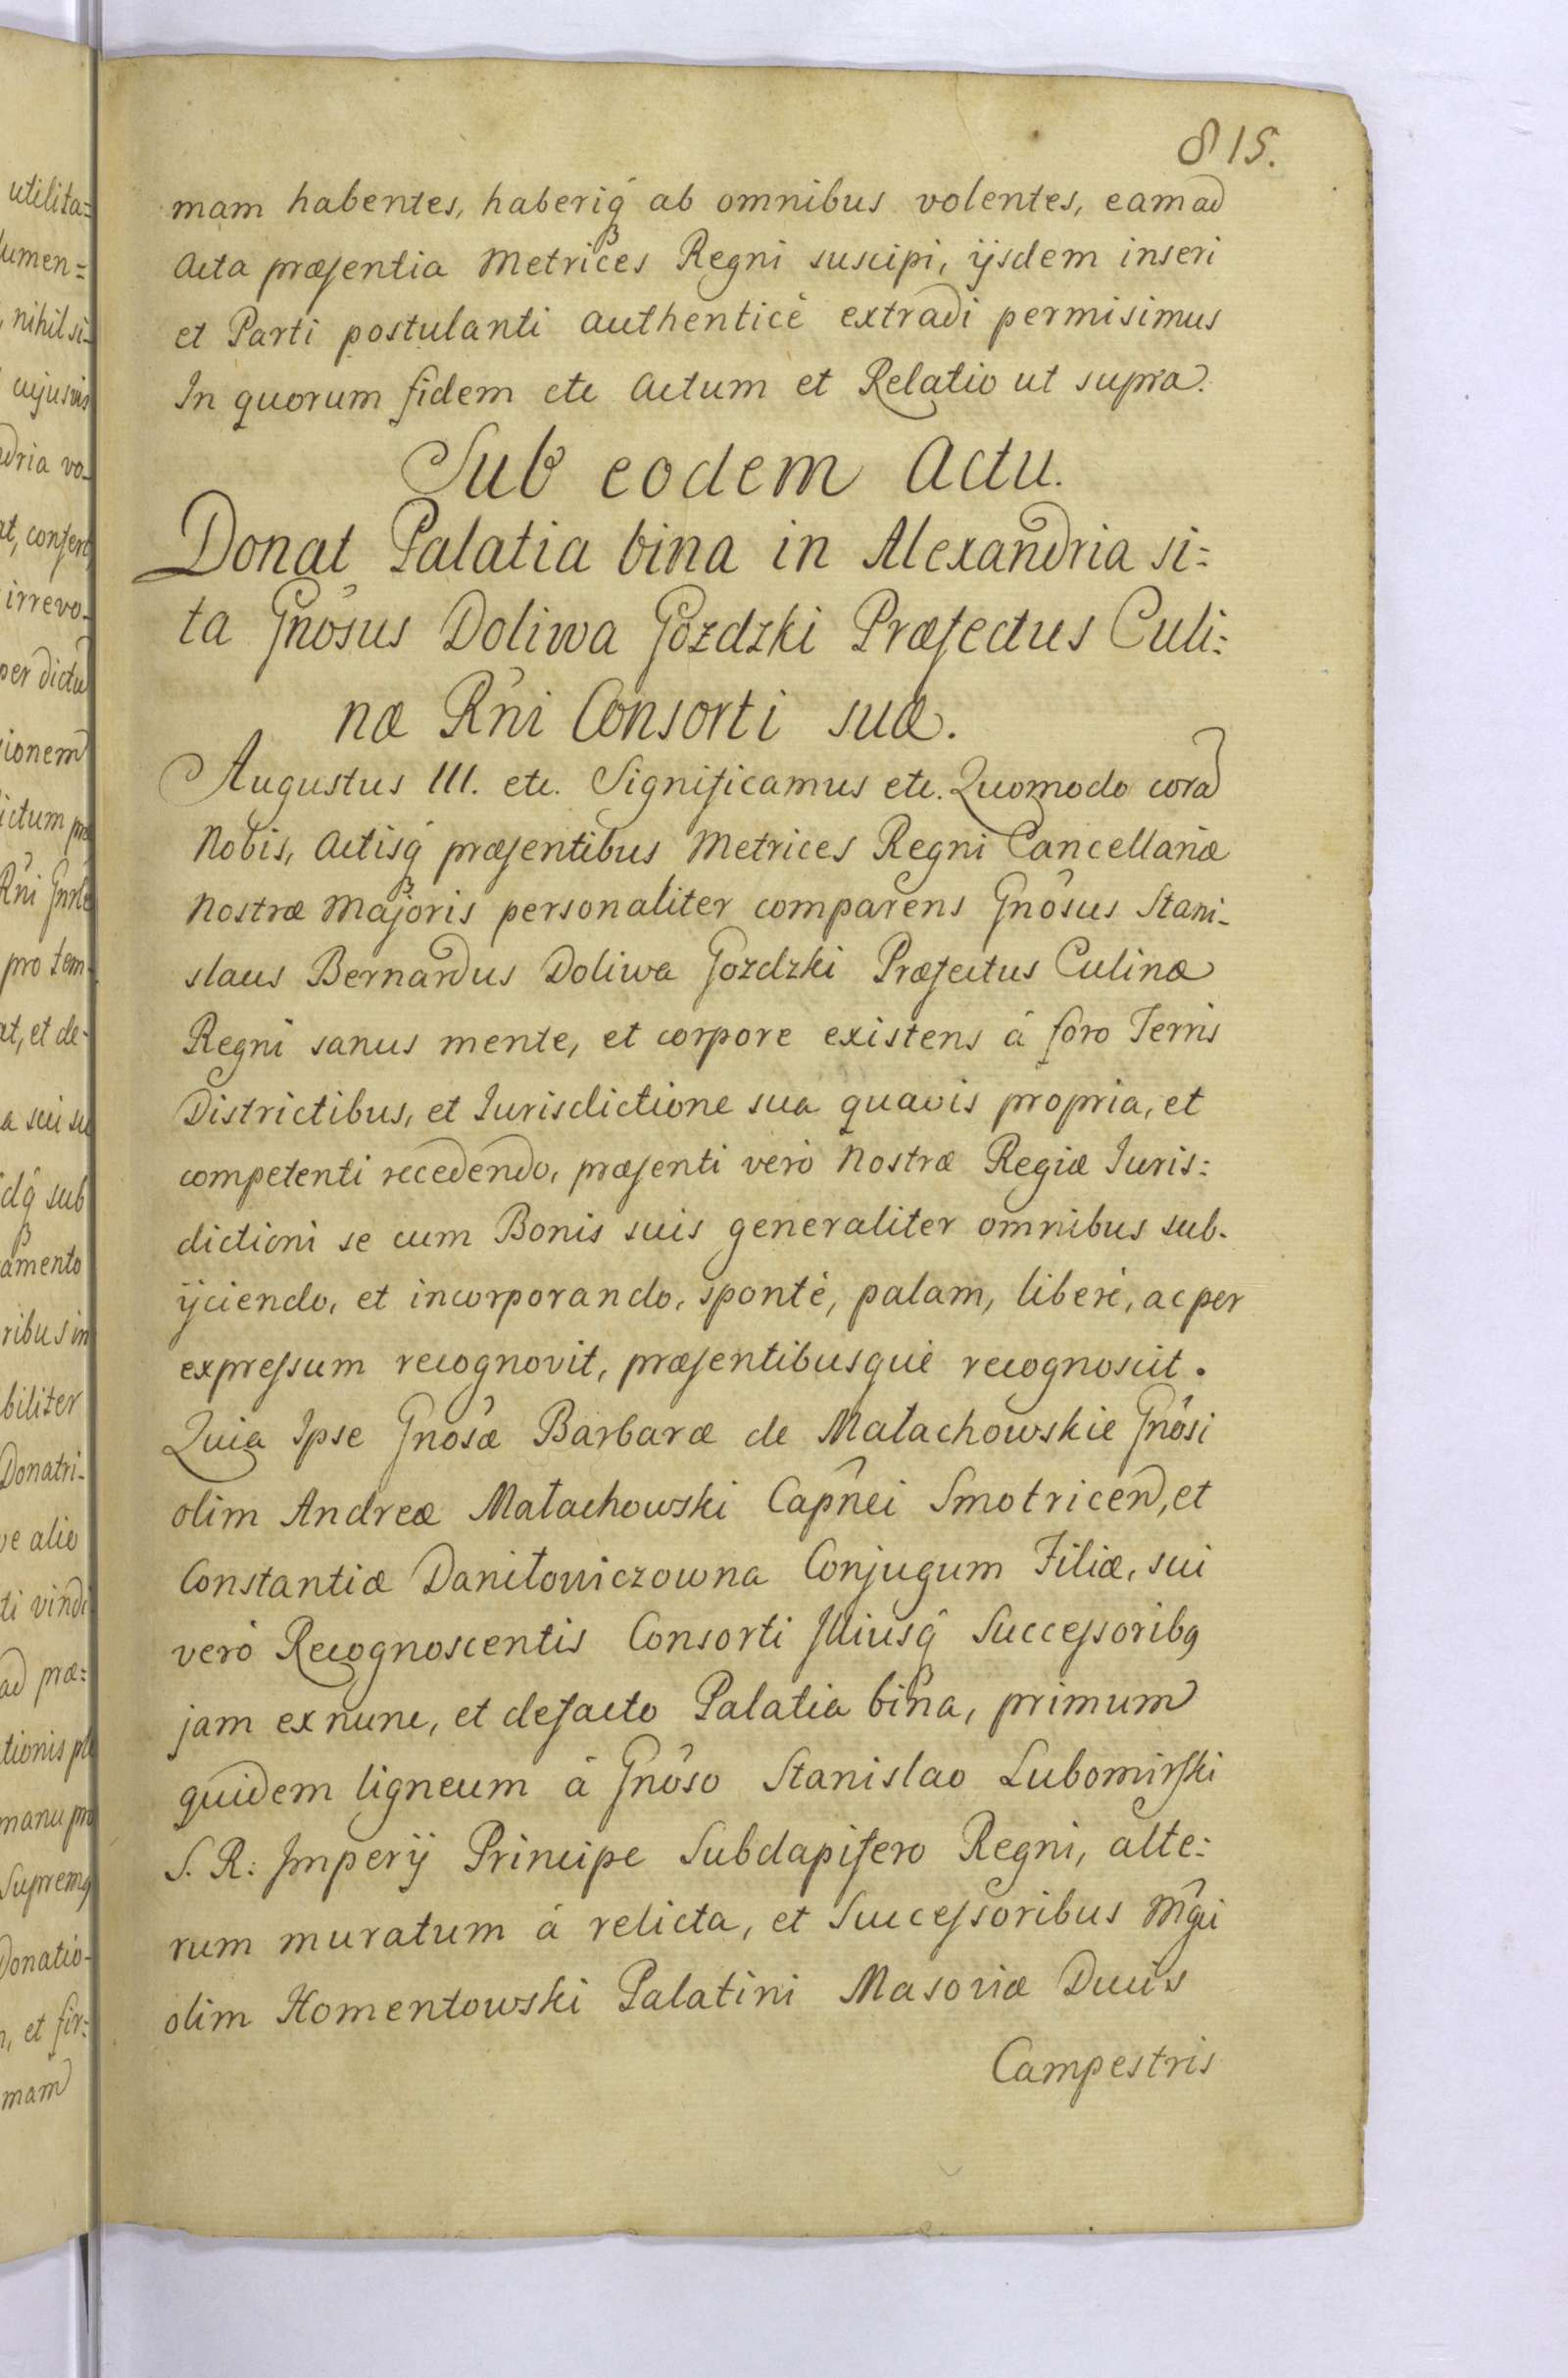 815.
mam habentes, haberiq̃ ab omnibus volentes, eam ad
Acta præsentia Metrices Regni suscipi, ijsdem inseri
et Parti postulanti authenticè extradi permisimus
In quorum fidem etc Actum et Relatio ut supra.
Sub eodem Actu.
Donat Palatia bina in Alexandria si=
ta Gnôsus Doliwa Gozdzki Præfectus Culi=
næ Rñi Consorti suæ.
Augustus III. etc. Significamus etc. Quomodo corã
Nobis, Actisq̃ præsentibus Metrices Regni Cancellariæ
Nostræ Majoris personaliter comparens Gnôsus Stani-
slaus Bernardus Doliwa Gozdzki Præfectus Culinæ
Regni sanus mente, et corpore existens à foro Terris
Districtibus, et Iurisdictione sua quavis propria, et
competenti recedendo, præsenti verò Nostræ Regiæ Iuris=
dictioni se cum Bonis suis generaliter omnibus sub-
ijciendo, et incorporando, spontè, palam, liberè, ac per
expressum recognovit, præsentibusquè recognoscit.
Quia Ipse Gnôsæ Barbaræ de Małachowskie Gnôsi
olim Andreæ Małachowski Capñei Smotriceñ, et
Constantiæ Daniłowiczowna Conjugum Filiæ, sui
verò Recognoscentis Consorti Illiusq̃ Successoribq
jam ex nunc, et defacto Palatia bina, primum
quidem ligneum à Gnôso Stanislao Lubomirski
S. R: Imperij Principe Subdapifero Regni, alte=
rum muratum à relicta, et Successoribus Mg̃ci
olim Homentowski Palatini Masoviæ Ducis
Campestris
utilita=
lumen=
, nihil si-
cujusvis
ndria vo-
at, confert
irrevo-
per dictu
ionem
ictum præ
Rñi Gnrle
pro tem
at, et de-
a sui su
dq̃ sub
amento
ribus in
biliter
Donatri-
ve alio
ti vindi
ad præ=
tionis ple
manu pro
Supremq
Donatio-
, et fir=
mam